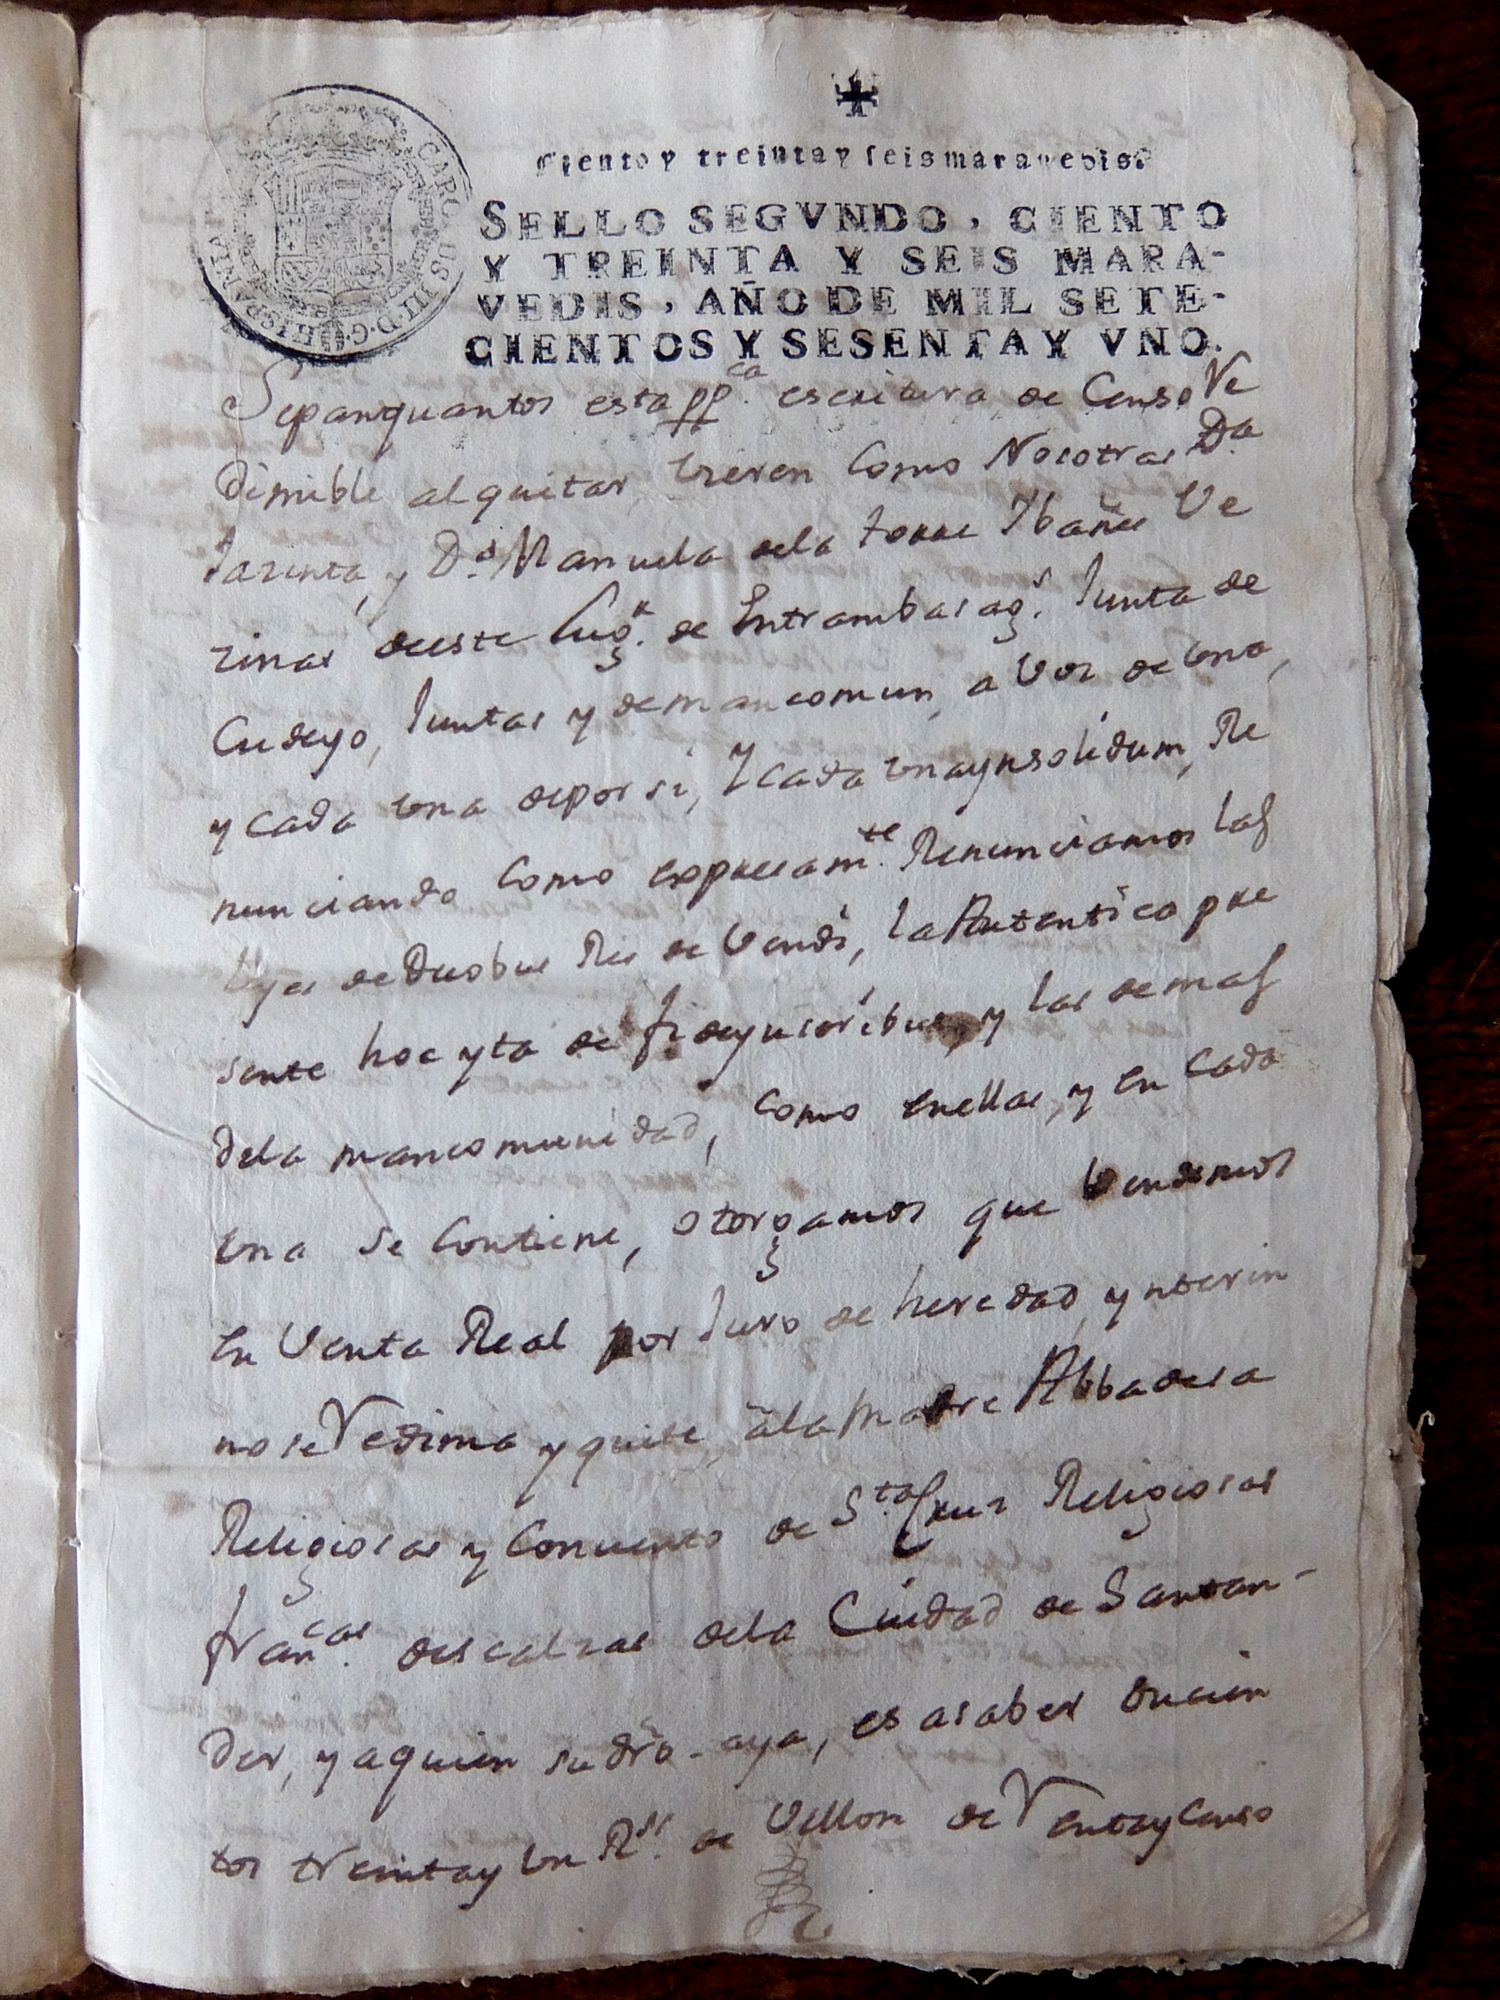 CAROLUS III D. G. HISPANIA
Ciento y treinta y seis maravedis.
SELLO SEGVNDO, CIENTO
Y TREINTA Y SEIS MARA-
VEDIS, AÑO DE MIL SETE-
CIENTOS Y SESENTA Y VNO.
Sepanquantos esta ppca. escritura de Censo Re
dimible alquitar, vieren Como Nosotras Da.
Jazinta, y Da. Manuela dela torre Ybañez Ve
zinas deeste Lugr. de Entrambasags. Junta de
Cudeyo, Juntas y demancomun, a voz de una,
y cada una deporsi, Y cada unaynsolidum, Re
nunciando Como expresamte. Renunciamos las
leyes deDuobus Res de vendi, la Autentica pre
sente hoc yta de fideyusoribus, y las demas
dela mancomunidad, como enellas, y en cada
una se Contiene, otorgamos que vendemos
en venta Real por Juro de heredad, ynterin
nose Redima y quite, ala Madre Abbadesa
Religiosas y Conuento de Sta. Cruz Religiosas
francas. descalzas dela Ciudad de Santan-
der, y aquien su dro. aya, es asaber ducien
tos treintay un Rss. de vellon de Rentay Censo